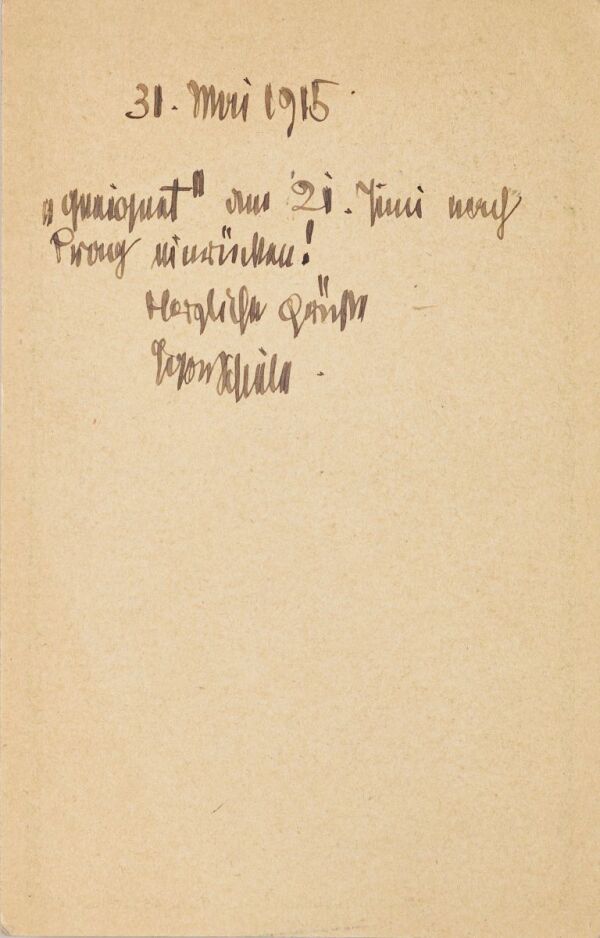 31. Mai 1915
„geeignet" am 21. Juni nach
Prag einrücken!
Herzliche Grüße
Egon Schiele.